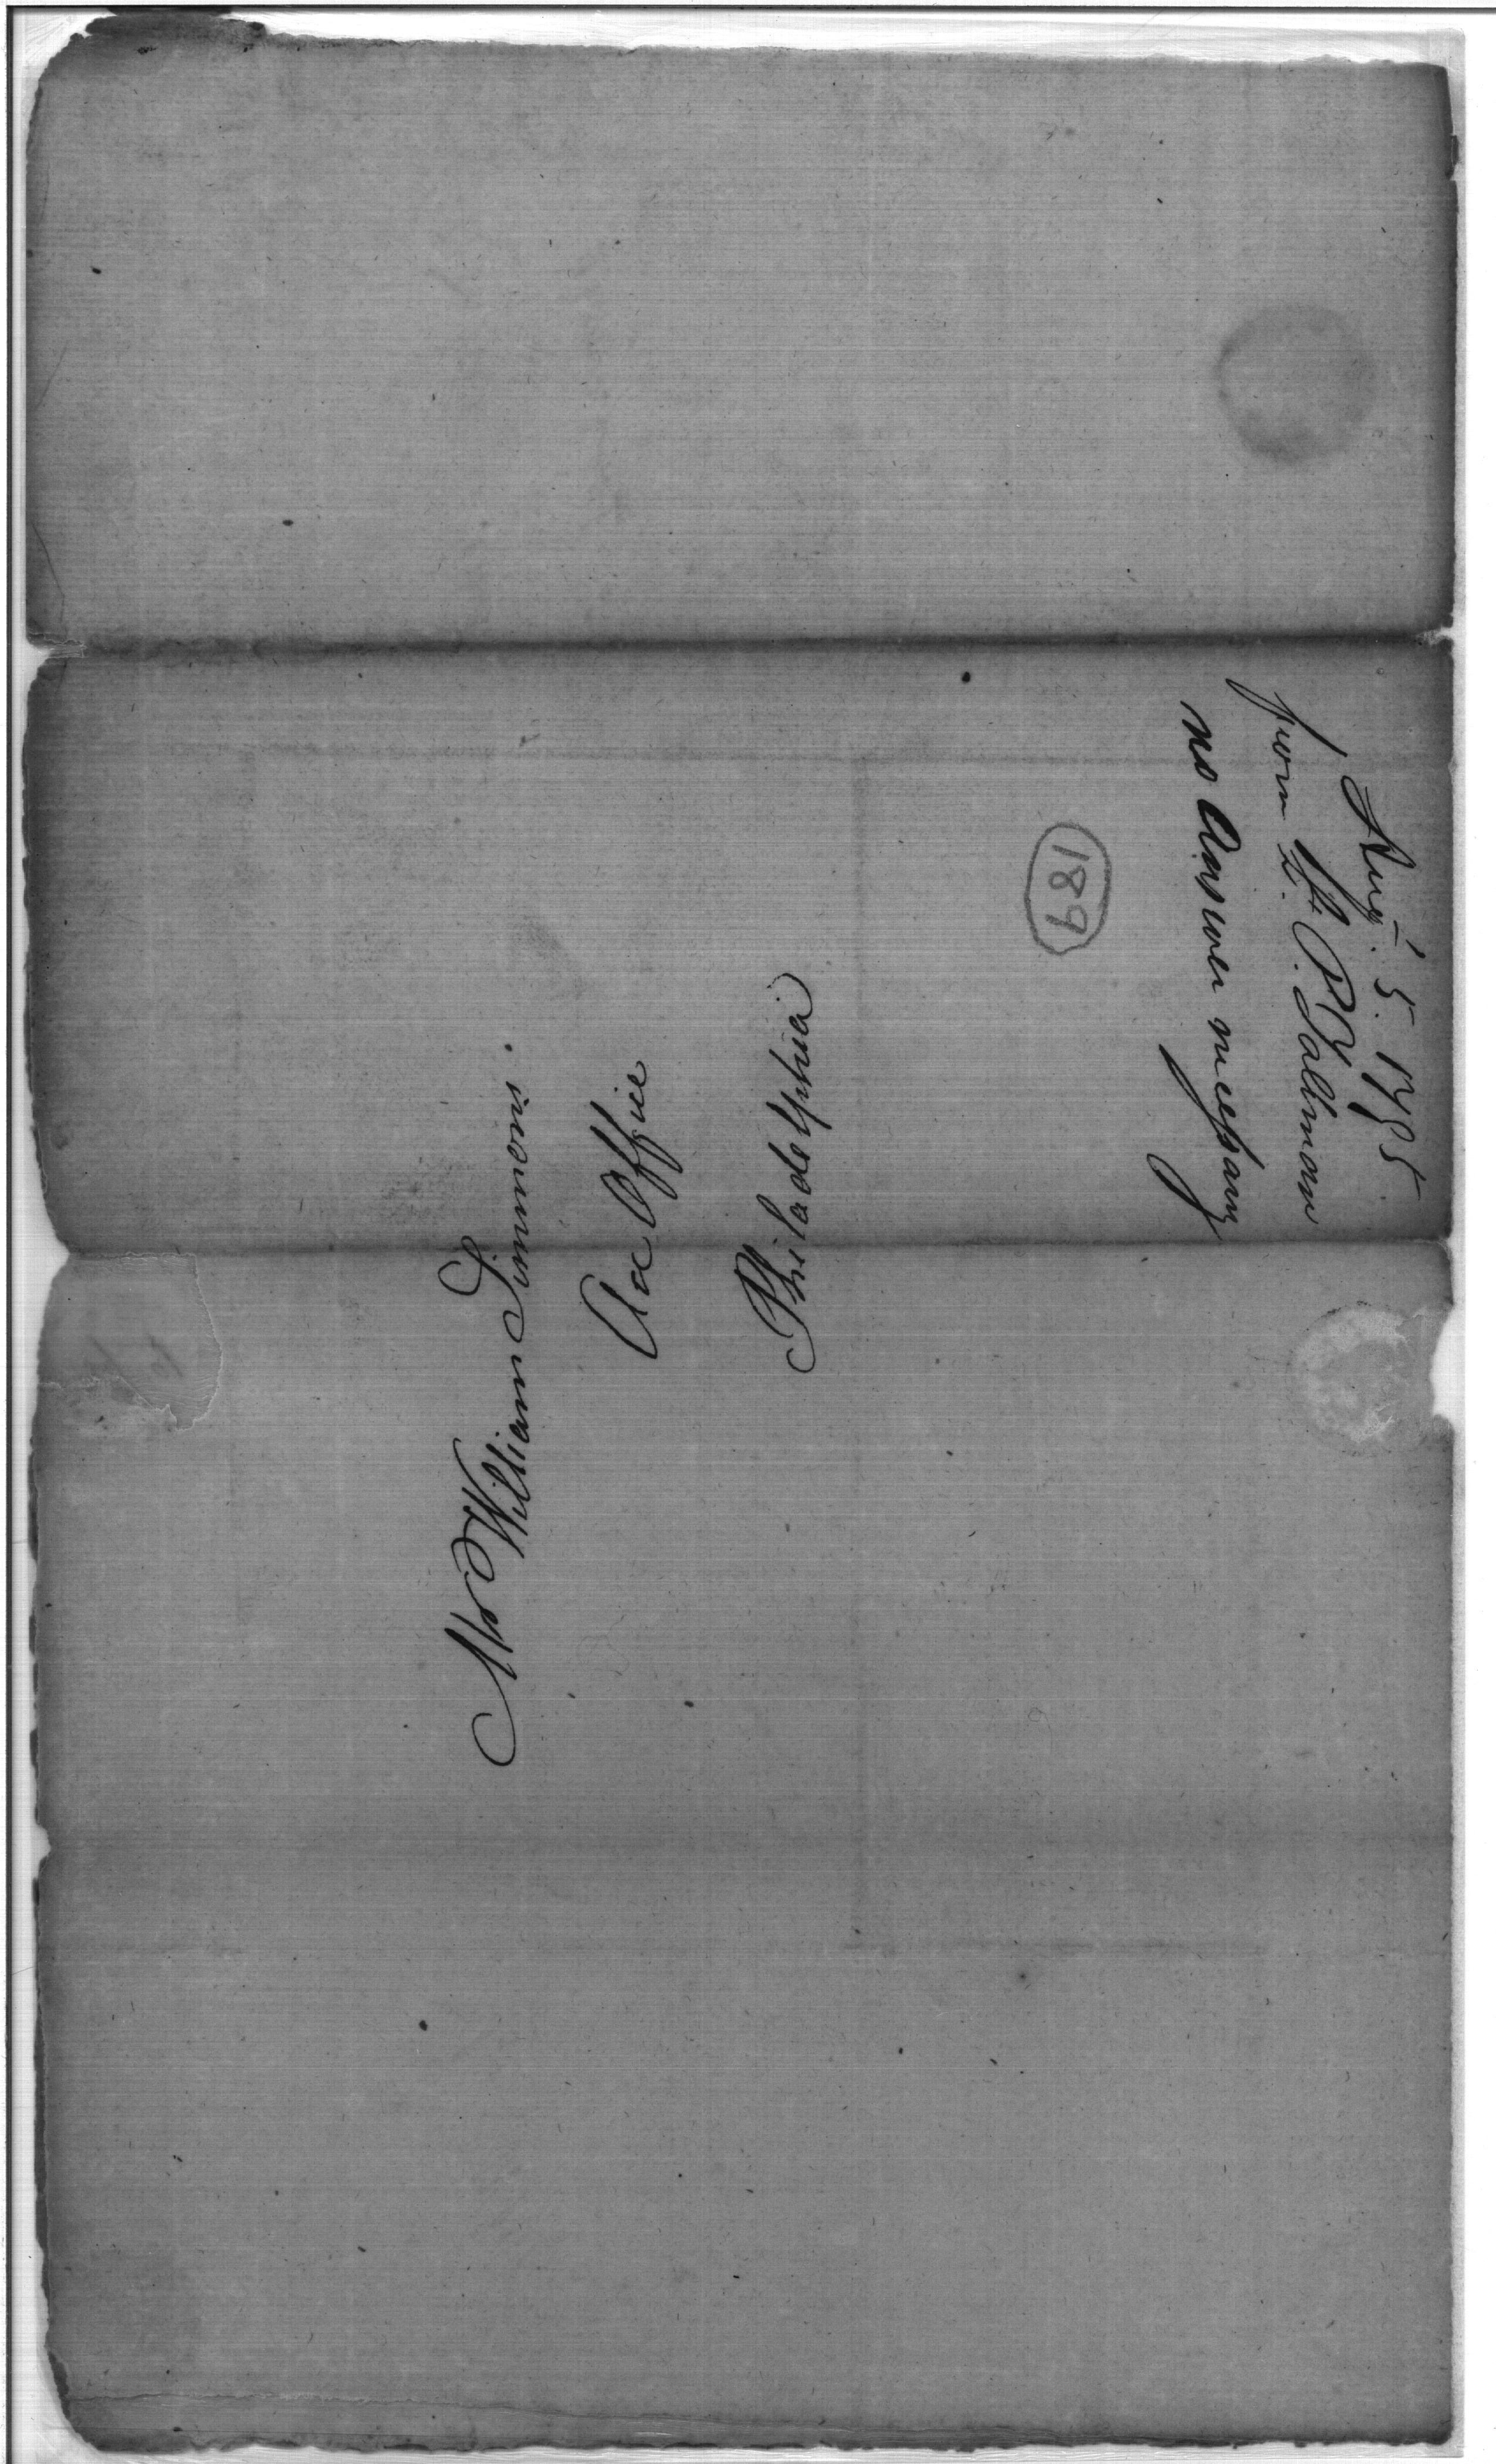 Mr William Simmons.
Acc Office
Philadelphia
Augt. 5. 1795
from Lt. P. Tallman
no Answer necessary
189